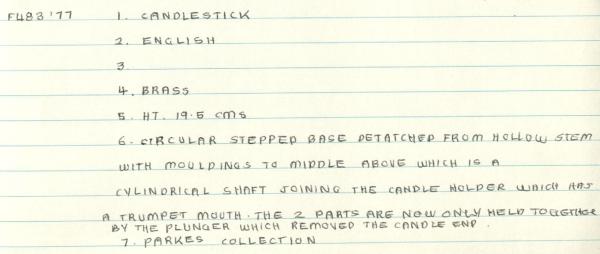 F483'77 1. CANDLESTICK
2. ENGLISH
3
4. BRASS
5. HT. 19.5 cms
6. CIRCULAR STEPPED BASE DETATCHED FROM HOLLOW STEM
WITH MOULDINGS TO MIDDLE ABOVE WHICH IS A
CYLINDRICAL SHAFT JOINING THE CANDLE HOLDER WHICH HAS
A TRUMPET MOUTH. THE 2 PARTS ARE NOW ONLY HELD TOGETHER
BY THE PLUNGER WHICH REMOVED THE CANDLE END.
7. PARKES COLLECTION